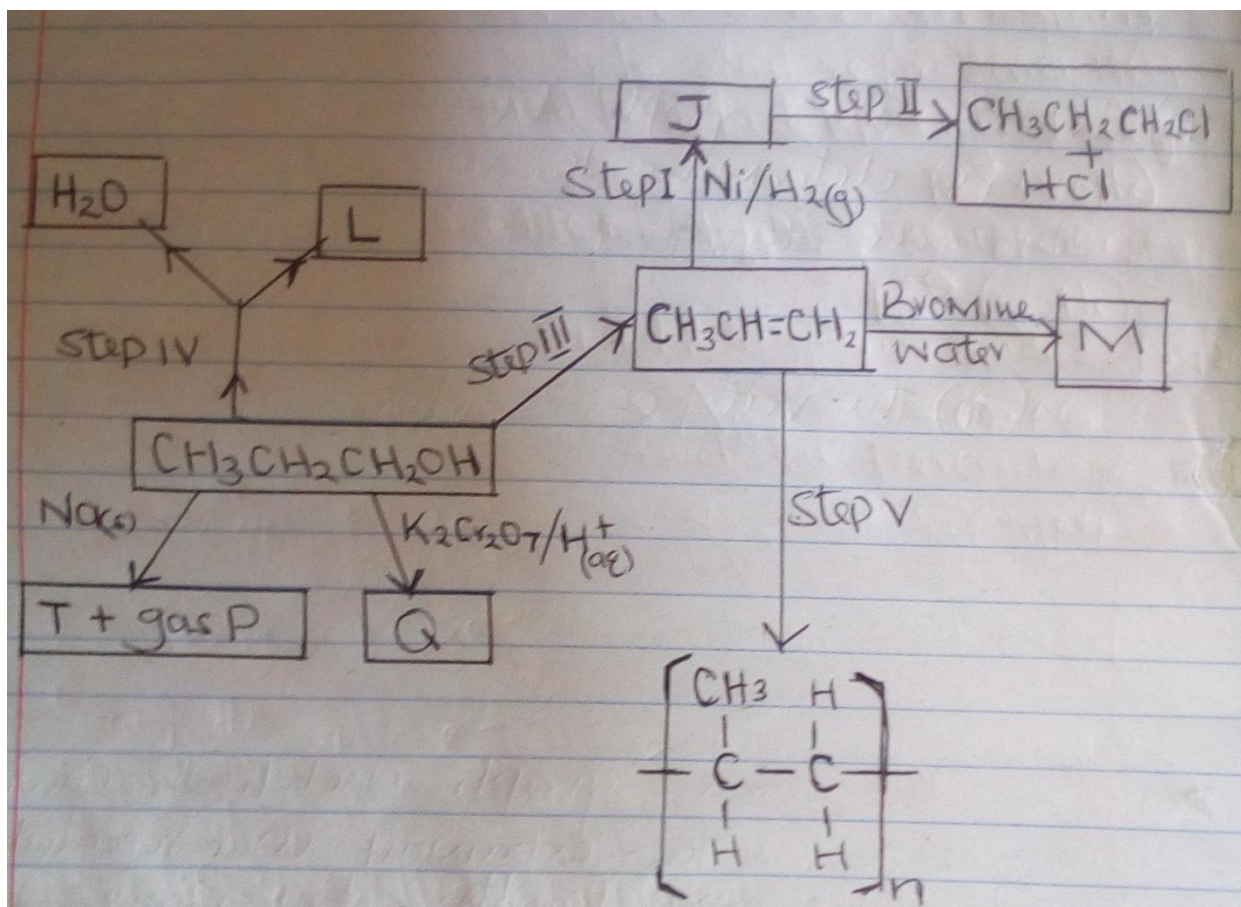 J
Step II
CH3CH2CH2Cl
+
HCl
Step I
Ni/H2(g)
H2O
L
Step IV
Step III
CH3CH=CH2
Bromine
Water
M
CH3CH2CH2OH
Na(s)
K2Cr2O7/H+(aq)
Step V
T + gas P
Q
CH3 H
C – C
H H
n